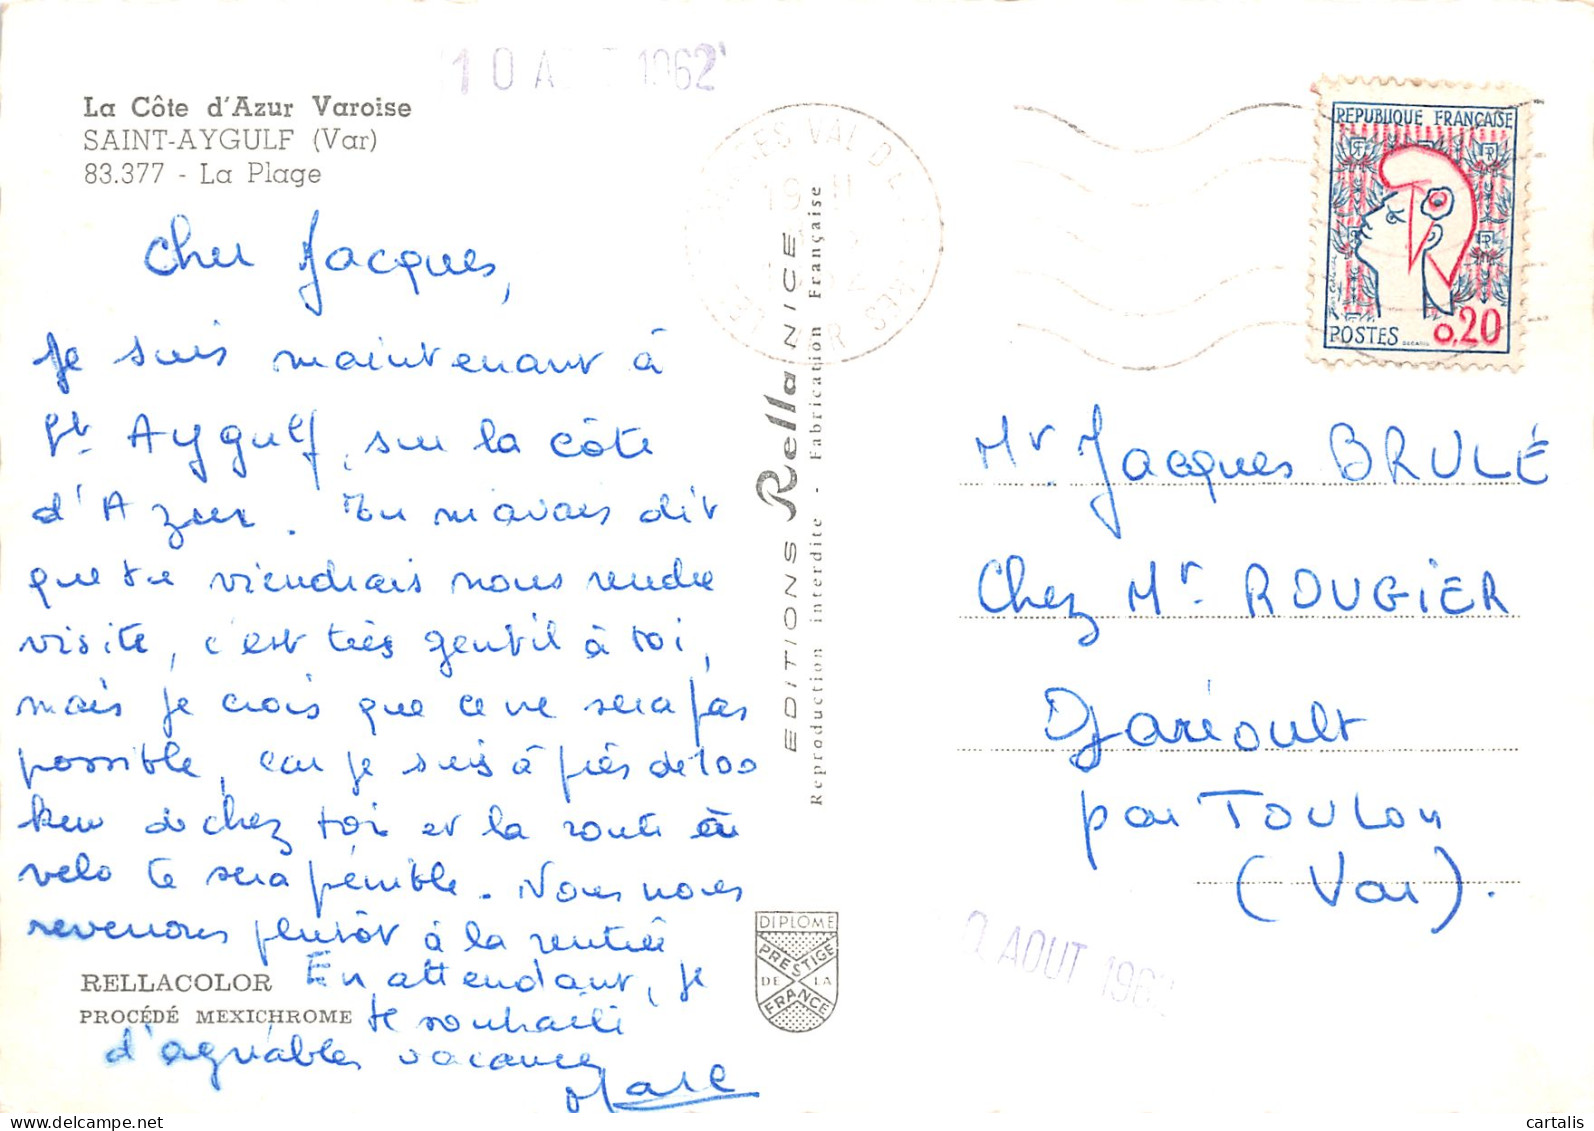 10 A 1962
La Côte d'Azur Varoise
SAINT-AYGULF (Var)
83.377 - La Plage
Cher Jacques,
Je suis maintenant à
St. Aygulf, sur la côte
d'Azur. Tu m'avais dit
que tu viendrais nous rendre
visite, c'est très gentil à toi,
mais je crois que ce ne sera pas
possible, car je suis à près de 100
km de chez toi et la route en
velo te sera pénible. Nous nous
reverrons plutôt à la rentrée
En attendant, je
te souhaite
d'agréables vacances
Marc
RELLACOLOR
PROCÉDÉ MEXICHROME
EDITIONS Rella NICE
Reproduction interdite - Fabrication Française
DIPLOME
PRESTIGE
DE LA
FRANCE
VAL DE
19
VAR
REPUBLIQUE FRANÇAISE
POSTES 0,20
Mr. Jacques BRULÉ
Chez Mr. ROUGIER
par TOULON
(Var).
AOUT 196
CARTOLIS for delcampe.net